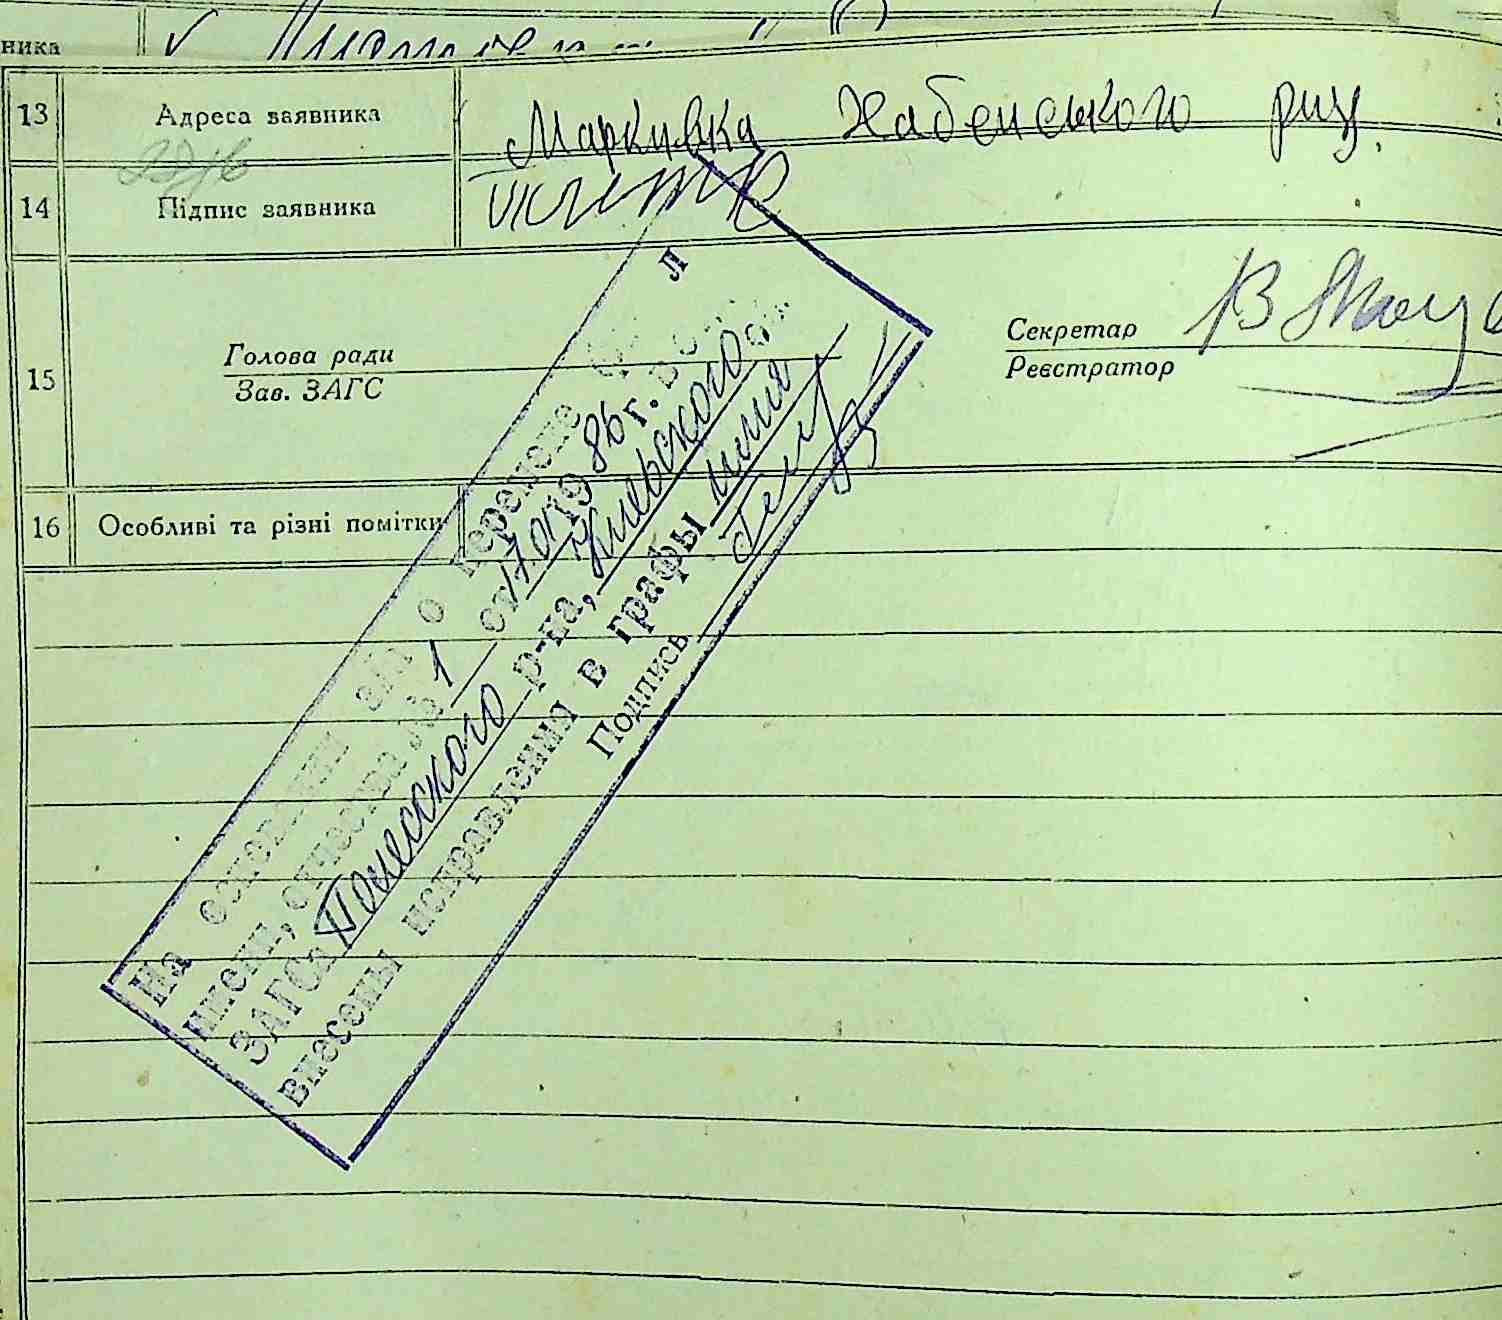 ника
13 Адреса заявника Маркивка Хабенського
14 Підпис заявника
15 Голова ради
Зав. ЗАГС
Секретар
Реєстратор
16 Особливі та різні помітки
На основании з/о о перемене
имени, отчества № 1 от 17.01 1986 г.
ЗАГСа Полесского р-на, Киевского
внесены исправления в графы
Подпись